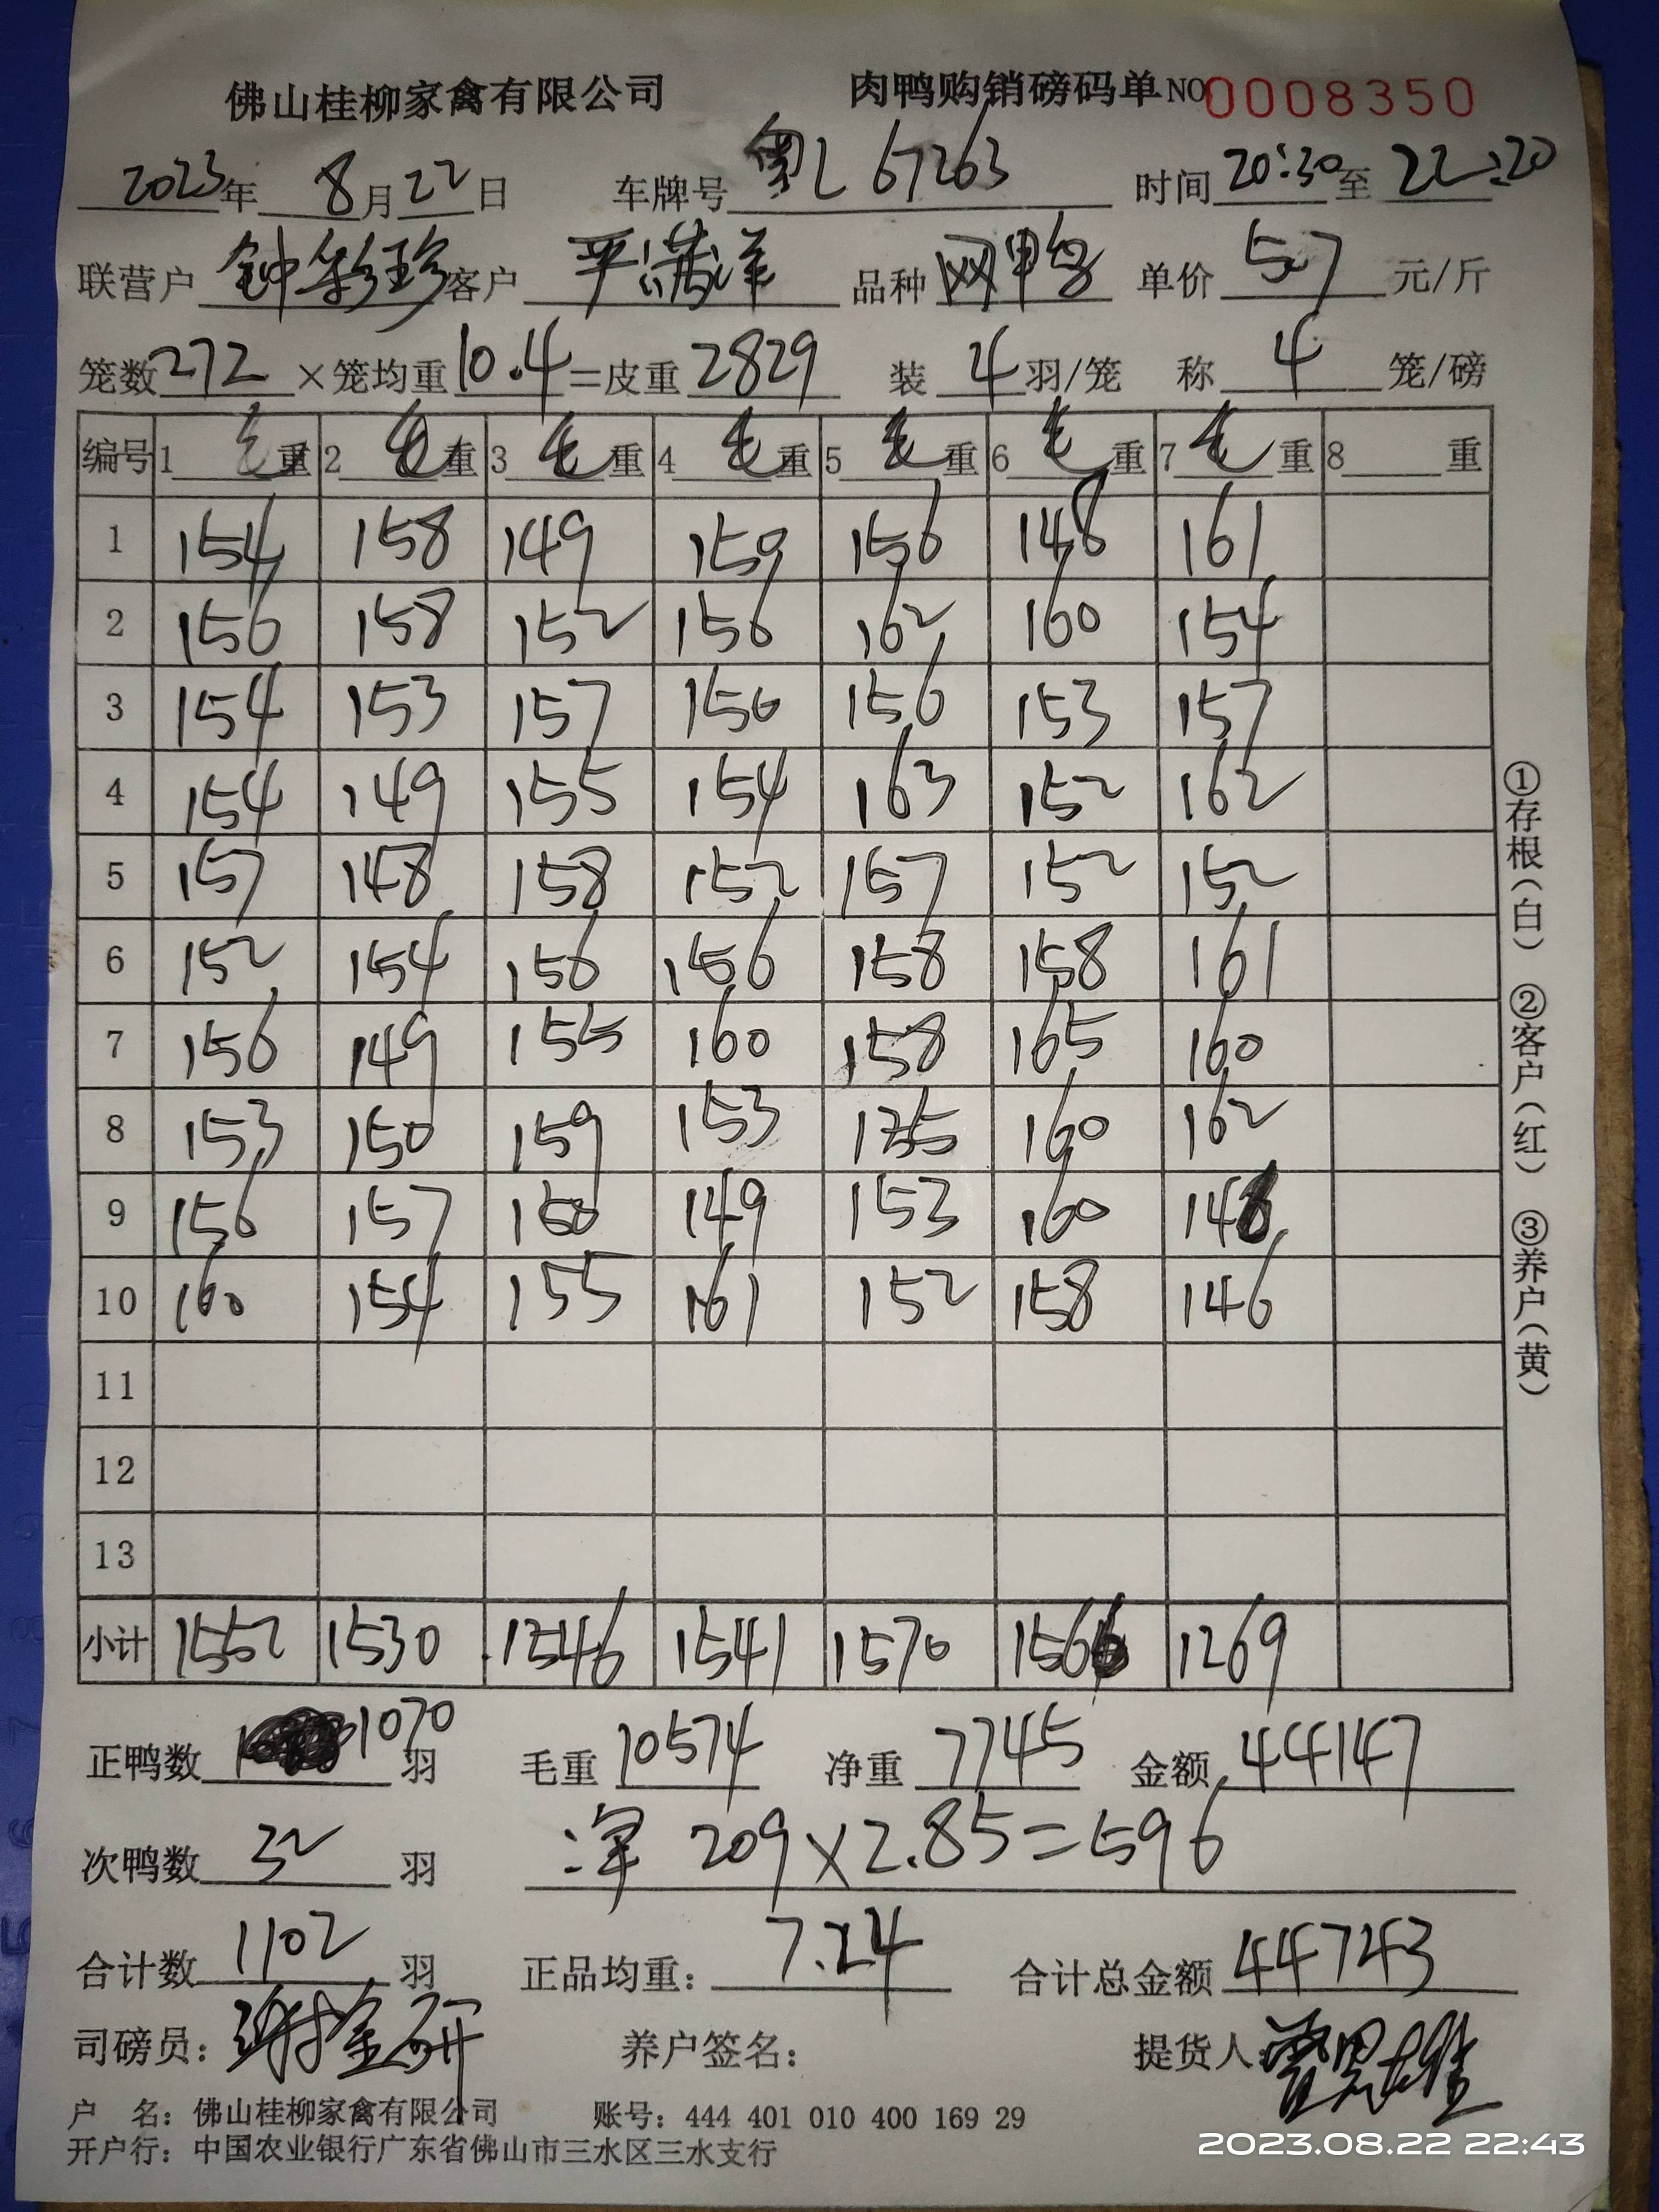 佛山桂柳家禽有限公司 肉鸭购销磅码单 NO 0008350
2023年 8月22日 车牌号 粤L 67263 时间 20:30 至 22:20
联营户 钟彩珍 客户 平满洋 品种 网鸭 单价 5.7 元/斤
笼数 272 ×笼均重 10.4 =皮重 2829 装 4 羽/笼 称 4 笼/磅
编号 1 毛重 2 毛重 3 毛重 4 毛重 5 毛重 6 毛重 7 毛重 8 重
1 154 158 149 150 156 148 161
2 156 158 152 156 162 160 154
3 154 153 157 150 156 153 157
4 154 149 155 154 163 152 162
5 157 148 158 152 157 152 152
6 152 154 156 156 158 158 161
7 156 149 155 160 158 165 160
8 153 150 159 153 155 160 162
9 156 157 150 149 153 160
10 160 154 155 161 152 158 146
11
12
13
小计 1552 1530 1546 1541 1570 1566 1269
正鸭数 1070 羽 毛重 10574 净重 7745 金额 44147
次鸭数 32 羽 净 209×2.85=596
合计数 1102 羽 正品均重: 7.24 合计总金额 44743
司磅员: 养户签名: 提货人:
户 名: 佛山桂柳家禽有限公司 账号: 444 401 010 400 169 29
开户行: 中国农业银行广东省佛山市三水区三水支行
①存根(白) ②客户(红) ③养户(黄)
2023.08.22 22:43